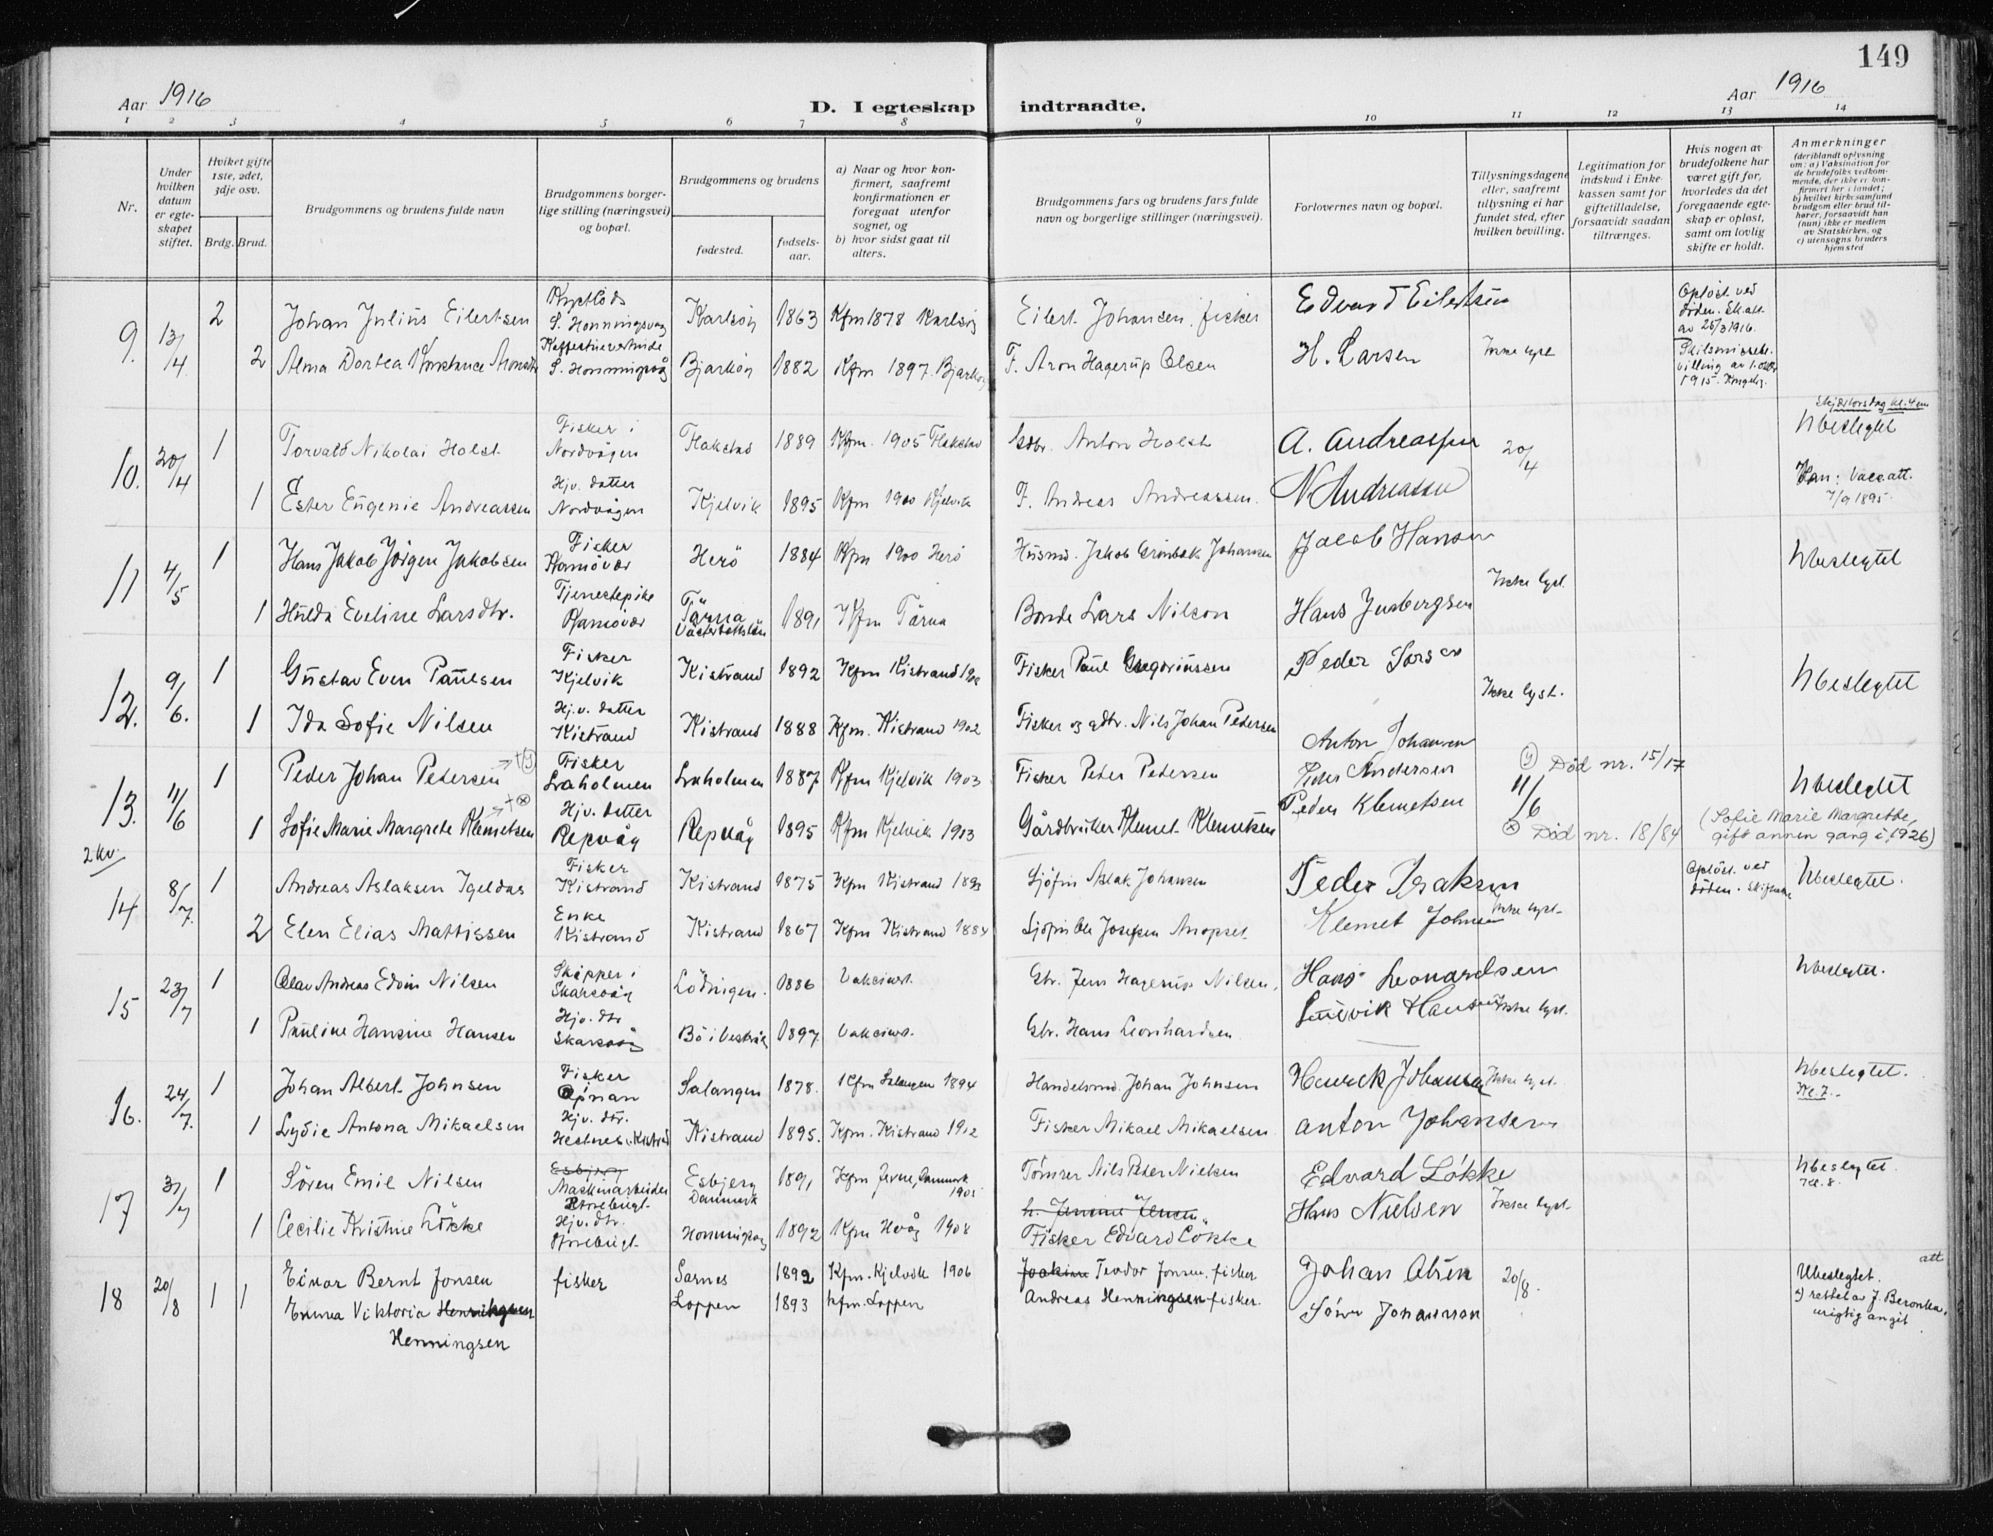 149
Aar 1916
D. I egteskap indtraadte.
Aar 1916
1 2 3 4 5 6 7 8 9 10 11 12 13 14
Nr.
Under hvilken datum er egteskapet stiftet.
Hviket gifte 1ste, 2det, 3dje osv.
Brdg. Brud.
Brudgommens og brudens fulde navn
Brudgommens borgerlige stilling (næringsvei) og bopæl.
Brudgommens og brudens
fødested.
fødselsaar.
a) Naar og hvor konfirmert, saafremt konfirmationen er foregaat utenfor sognet, og
b) hvor sidst gaat til alters.
Brudgommens fars og brudens fars fulde navn og borgerlige stillinger (næringsvei).
Forlovernes navn og bopæl.
Tillysningsdagene eller, saafremt tillysning ei har fundet sted, efter hvilken bevilling.
Legitimation for indskud i Enkekassen samt for giftetilladelse, forsaavidt saadan tiltrænges.
Hvis nogen av brudefolkene har været gift før, hvorledes da det foregaaende egteskap er opløst, samt om lovlig skifte er holdt.
Anmerkninger
(deriblandt oplysning om: a) Vaksination for de brudefolks vedkommende, der ikke er konfirmert her i landet; b) hvilket kirkesamfund brudgom eller brud tilhører, forsaavidt han (hun) ikke er medlem av Statskirken, og c) utensogns bruders hjemsted
9. 13/4 2 Johan Julius Eilertsen S. Honningsvaag Karlsöy 1863 Kfm 1878 Karlsöy Eilert Johansen, fisker Edvard Eilertsen Oplöst ved döden. Sk.att. av 25/3 1916.
2 Alma Dortea Konstance S. Honningsvåg Bjarköy 1882 Kfm 1897. Bjarköy F. Aron Hagerup Olsen H. Larsen Ikke lyst 1915.
10. 20/4 1 Torvald Nikolai Holst Fisker i Nordvågen Flakstad 1889 Kfm. 1905 Flakstad Gbr. Anton Holst A. Andreassen 20/4 Skjærtorsdag kl. 4 em Ubeslegtet
1 Ester Eugenie Andreassen Hjv. datter Nordvågen Kjelvik 1895 Kfm 1910 Kjelvik F. Andreas Andreassen. N Andreassen Han: Vacc.att. 7/9 1895.
11 4/5 1 Hans Jakob Jörgen Jakobsen Fisker Kamövær Herö 1884 Kfm 1900 Herö Husmd. Jakob Grönbek Johansen Jacob Hansen Ikke lyst Ubeslegtet
1 Hulda Eveline Larsdtr. Tjenestepike Kamövær Tärna 1891 Kfm Tärna Bonde Lars Nilson Hans
12. 9/6. 1 Gustav Even Paulsen Fisker Kjelvik Kistrand 1892 Kfm Kistrand Fisker Paul Gregoriussen Peder Ikke lyst. Ubeslegtet
1 Ida Sofie Nilsen Hj.v. datter Kistrand Kistrand 1888 Kfm. Kistrand 1902 Fisker og gdbr. Nils Johan Pedersen Anton Johansen
13. 11/6 1 Peder Johan Petersen Fisker Lakolmen 1887 Kfm Kjelvik 1903 Fisker Peter Petersen Peder Andersen 11/6 Död nr. 15/17 Ubeslegtet
1 Sofie Marie Margrete Klemetsen Hjv. datter Repvåg Repvåg 1895 Kfm Kjelvik 1913 Gårdbruker Klemet Klemetsen Peder Klemetsen Död nr. 18/84 (Sofie Marie Margrethe, gift annen gang i 1926)
14 8/7. 1 Andreas Aslaksen Igeldas Fisker Kistrand Kistrand 1875 Kfm Kistrand Sjöfin Aslak Johansen Peder Isaksen Oplöst ved döden. Ubeslegtet.
2 Elen Elias Mattissen Enke Kistrand Kistrand 1867 Kfm Kistrand 1884 Sjöfin Ole Josefsen Anopset Klemet Johnsen Ikke lyst-
15 23/7 1 Olav Andreas Edvin Nilsen Skipper i Skarsvåg Lödingen. 1886 Vakcinert. Gbr. Jens Hagerup Nilsen, Hans Leonardsen Ubeslegtet.
1 Pauline Hansine Hansen Hjv. dtr Skarsvåg Bö i Vesterål 1897. Vakcinert. Gbr. Hans Leonhardsen Ludvik Hansen Ikke lyst.
16. 24/7. 1 Johan Albert Johnsen Fisker Salangen 1878. Kfm Salangen 1894 Handelsmd. Johan Johnsen Henrik Johansen Ikke lyst. Ubeslegtet. Kl. 7.
1 Lydie Antona Mikaelsen Hjv. dtr. Kistrand 1895. Kfm. Kistrand 1912 Fisker Mikael Mikaelsen anton Johansen
17 31/7 1 Sören Emil Nilsen Esbjerg Maskinarbeider Storebugt. Esbjerg Danmark 1891 Kfm Jerne, Danmark Tömrer Nils Peter Nielsen Edvard Løkke Ubeslegtet. Kl. 8.
1 Cecilie Kristine Løkke Hjv. dtr. Storebugt. Honningsvåg 1892 Kfm Hvåg 1908 Fisker Edvard Løkke Hans Nielsen Ikke lyst.
18 20/8 1 1 Einar Bernt Jonsen fisker Sarnes 1892 Kfm. Kjelvik 1906 Joakim Teodor Jonsen, fisker Johan Olsen 20/8. Ubeslegtet. att
Emma Viktoria Henriksen Henningsen Loppen 1893 kfm. Loppen Andreas Henningsen fisker. Johannson rettet av J. Beronka, urigtig angit